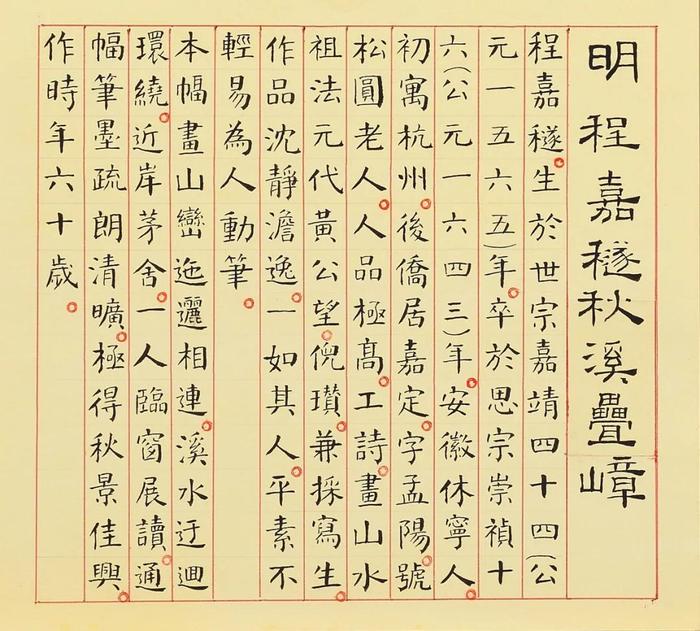 明程嘉燧秋溪疊嶂
程嘉燧。生於世宗嘉靖四十四(公
元一五六五)年。卒於思宗崇禎十
六(公元一六四三)年。安徽休寧人。
初寓杭州。後僑居嘉定。字孟陽。號
松圓老人。人品極高。工詩畫。山水
祖法元代黃公望。倪瓚。兼採寫生。
作品沈靜澹逸。一如其人。平素不
輕易為人動筆。
本幅畫山巒迤邐相連。溪水迂迴
環繞。近岸茅舍。一人臨窗展讀。通
幅筆墨疏朗清曠。極得秋景佳興。
作時年六十歲。